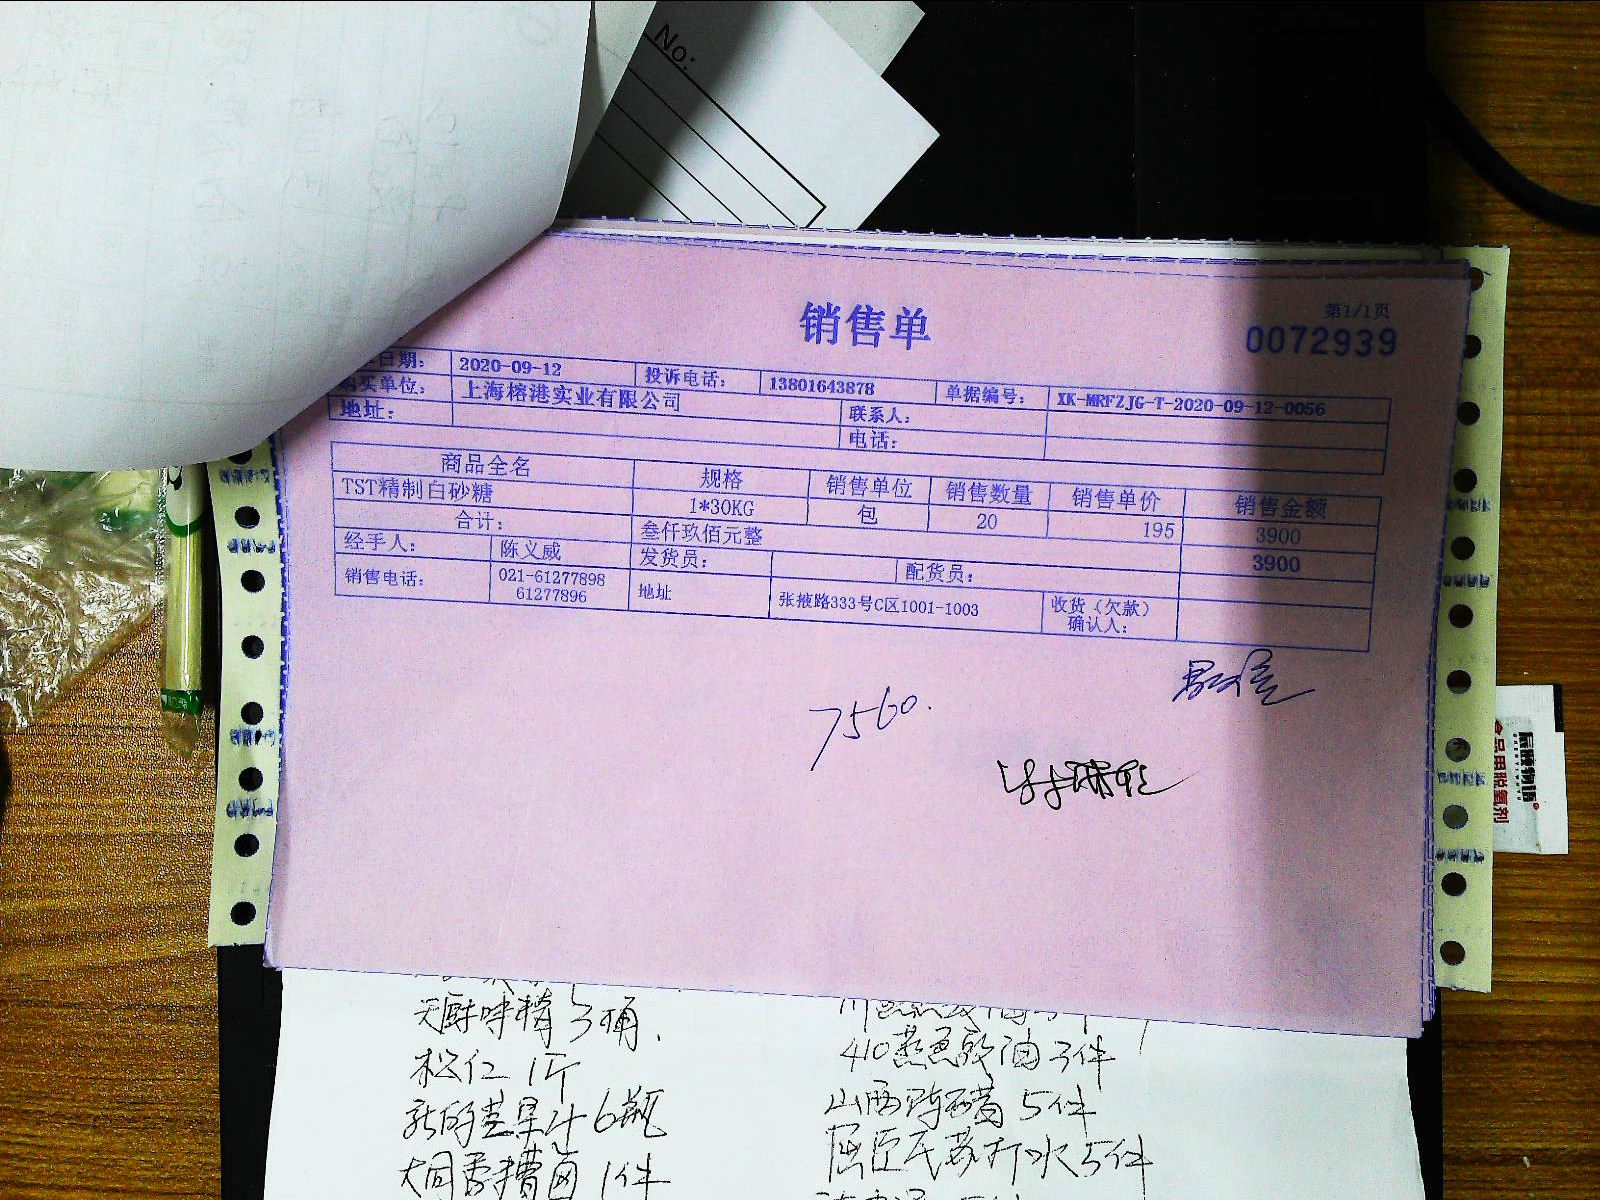 No:
销售单
第1/1页
0072939
日期： 2020-09-12 投诉电话： 13801643878 单据编号： XK-MRFZJG-T-2020-09-12-0056
购买单位： 上海榕港实业有限公司 联系人：
地址： 电话：
商品全名 规格 销售单位 销售数量 销售单价 销售金额
TST精制白砂糖 1*30KG 包 20 195 3900
合计： 叁仟玖佰元整 3900
经手人： 陈义威 发货员： 配货员：
销售电话： 021-61277898 61277896 地址 张掖路333号C区1001-1003 收货（欠款）确认人：
7560.
天厨味精 3桶.
松仁 1斤
6瓶
大同香糟卤 1件
410蒸鱼豉油 3件
山西陈醋 5件
屈臣氏苏打水 5件
食品用脱氧剂